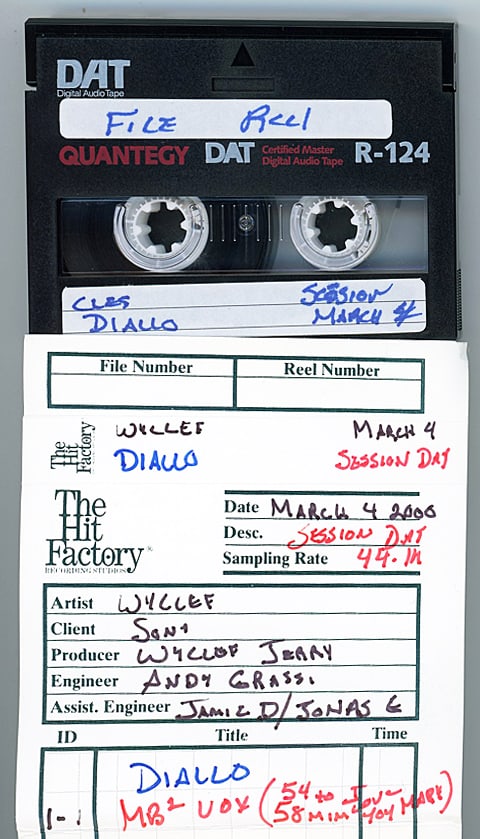 DAT
Digital Audio Tape
FILE REEL
QUANTEGY DAT Certified Master Digital Audio Tape R-124
CLEF SESSION
DIALLO MARCH 4
File Number Reel Number
The Hit Factory
WYCLEF MARCH 4
DIALLO SESSION DAT
The Hit Factory
RECORDING STUDIOS
Date MARCH 4 2000
Desc. SESSION DAT
Sampling Rate 44.1K
Artist WYCLEF
Client SONY
Producer WYCLEF JERRY
Engineer ANDY GRASSI
Assist. Engineer JAMIL D/JONAS G
ID Title Time
DIALLO
1-1 MB2 VOX (54 to 58 MIN I LOVE YOU MARY)